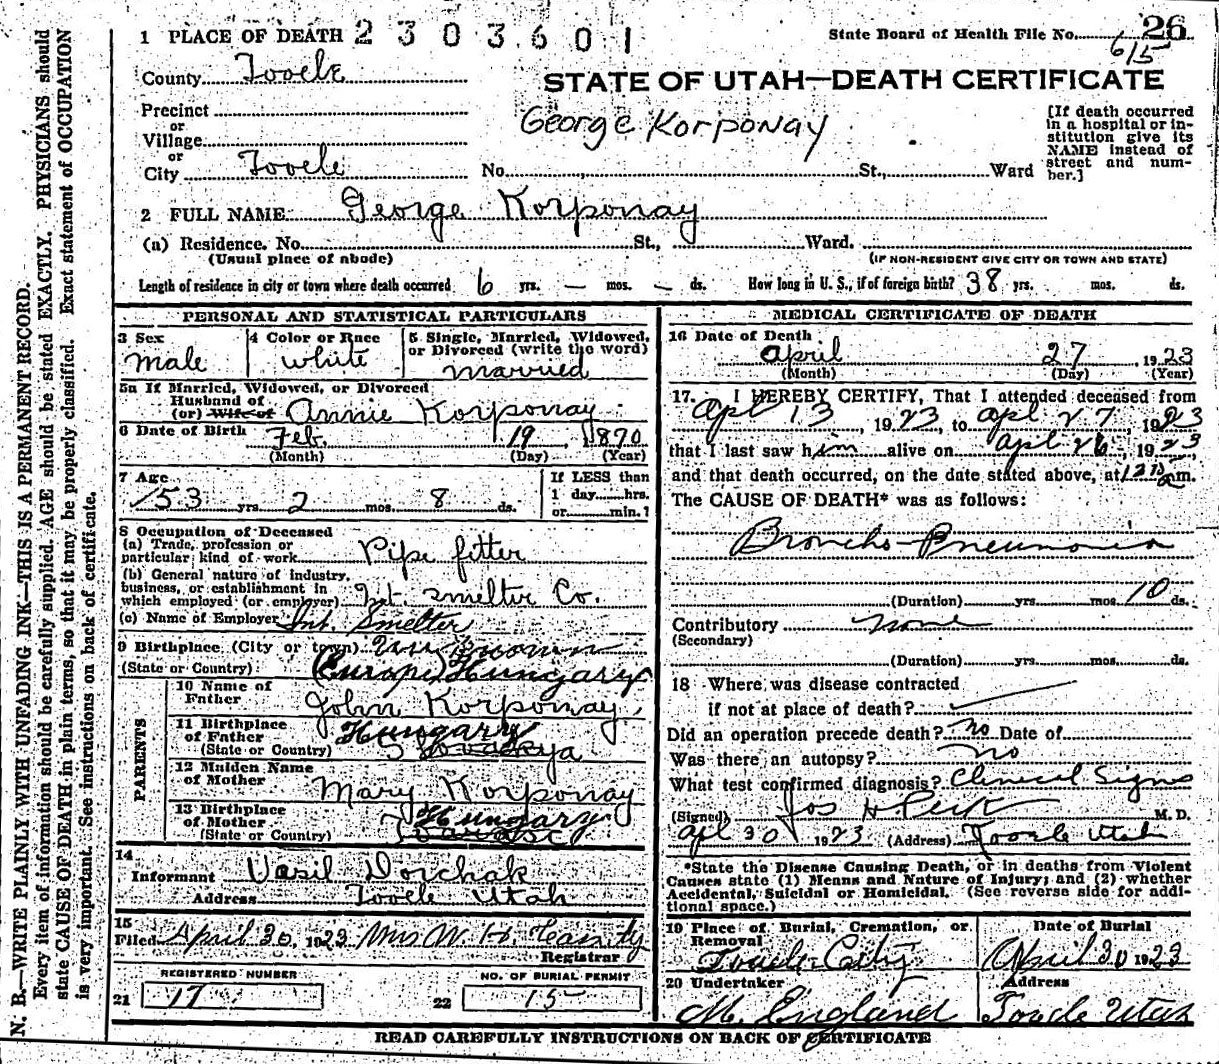 1 PLACE OF DEATH 2303601
State Board of Health File No. 26
615
County Tooele
STATE OF UTAH—DEATH CERTIFICATE
Precinct
or
Village
or
City Tooele
George Korponay
No. St., Ward
[If death occurred
in a hospital or in-
stitution give its
NAME instead of
street and num-
ber.]
2 FULL NAME George Korponay
(a) Residence. No. St., Ward.
(Usual place of abode)
(IF NON-RESIDENT GIVE CITY OR TOWN AND STATE)
Length of residence in city or town where death occurred 6 yrs. — mos. — ds. How long in U. S., if of foreign birth? 38 yrs. mos. ds.
PERSONAL AND STATISTICAL PARTICULARS
3 Sex
male
4 Color or Race
white
5 Single, Married, Widowed,
or Divorced (write the word)
married
5a If Married, Widowed, or Divorced
Husband of
(or) Wife of Annie Korponay
6 Date of Birth Feb. 19, 1870
(Month) (Day) (Year)
7 Age
53 yrs. 2 mos. 8 ds.
If LESS than
1 day hrs.
or min.?
8 Occupation of Deceased
(a) Trade, profession or
particular kind of work Pipe fitter
(b) General nature of industry,
business, or establishment in
which employed (or employer) Int. Smelter Co.
(c) Name of Employer Int. Smelter
9 Birthplace (City or town) Unknown
(State or Country) (Europe) Hungary
PARENTS
10 Name of
Father John Korponay
11 Birthplace
of Father Hungary
(State or Country)
12 Maiden Name
of Mother Mary Korponay
13 Birthplace
of Mother Hungary
(State or Country)
14
Informant Vasil Dorchak
Address Tooele Utah
15
Filed April 30, 1923 Mrs W. H.
Registrar
REGISTERED NUMBER
21 17
NO. OF BURIAL PERMIT
22 15
MEDICAL CERTIFICATE OF DEATH
16 Date of Death
April 27, 1923
(Month) (Day) (Year)
17. I HEREBY CERTIFY, That I attended deceased from
Apl 13, 1923, to Apl 27, 1923
that I last saw him alive on Apl 26, 1923,
and that death occurred, on the date stated above, at 12 m.
The CAUSE OF DEATH* was as follows:
Broncho-Pneumonia
(Duration) yrs. mos. 10 ds.
Contributory none
(Secondary)
(Duration) yrs. mos. ds.
18 Where was disease contracted
if not at place of death?
Did an operation precede death? no Date of
Was there an autopsy? no
What test confirmed diagnosis? Clinical Signs
(Signed) Jos H Peck M. D.
Apl 30 1923 (Address) Tooele Utah
*State the Disease Causing Death, or in deaths from Violent
Causes state (1) Means and Nature of Injury; and (2) whether
Accidental, Suicidal or Homicidal. (See reverse side for addi-
tional space.)
19 Place of Burial, Cremation, or
Removal
Tooele City
Date of Burial
April 30 1923
20 Undertaker
M. England
Address
Tooele Utah
READ CAREFULLY INSTRUCTIONS ON BACK OF CERTIFICATE
N. B.—WRITE PLAINLY WITH UNFADING INK—THIS IS A PERMANENT RECORD.
Every item of information should be carefully supplied. AGE should be stated EXACTLY. PHYSICIANS should
state CAUSE OF DEATH in plain terms, so that it may be properly classified. Exact statement of OCCUPATION
is very important. See instructions on back of certificate.